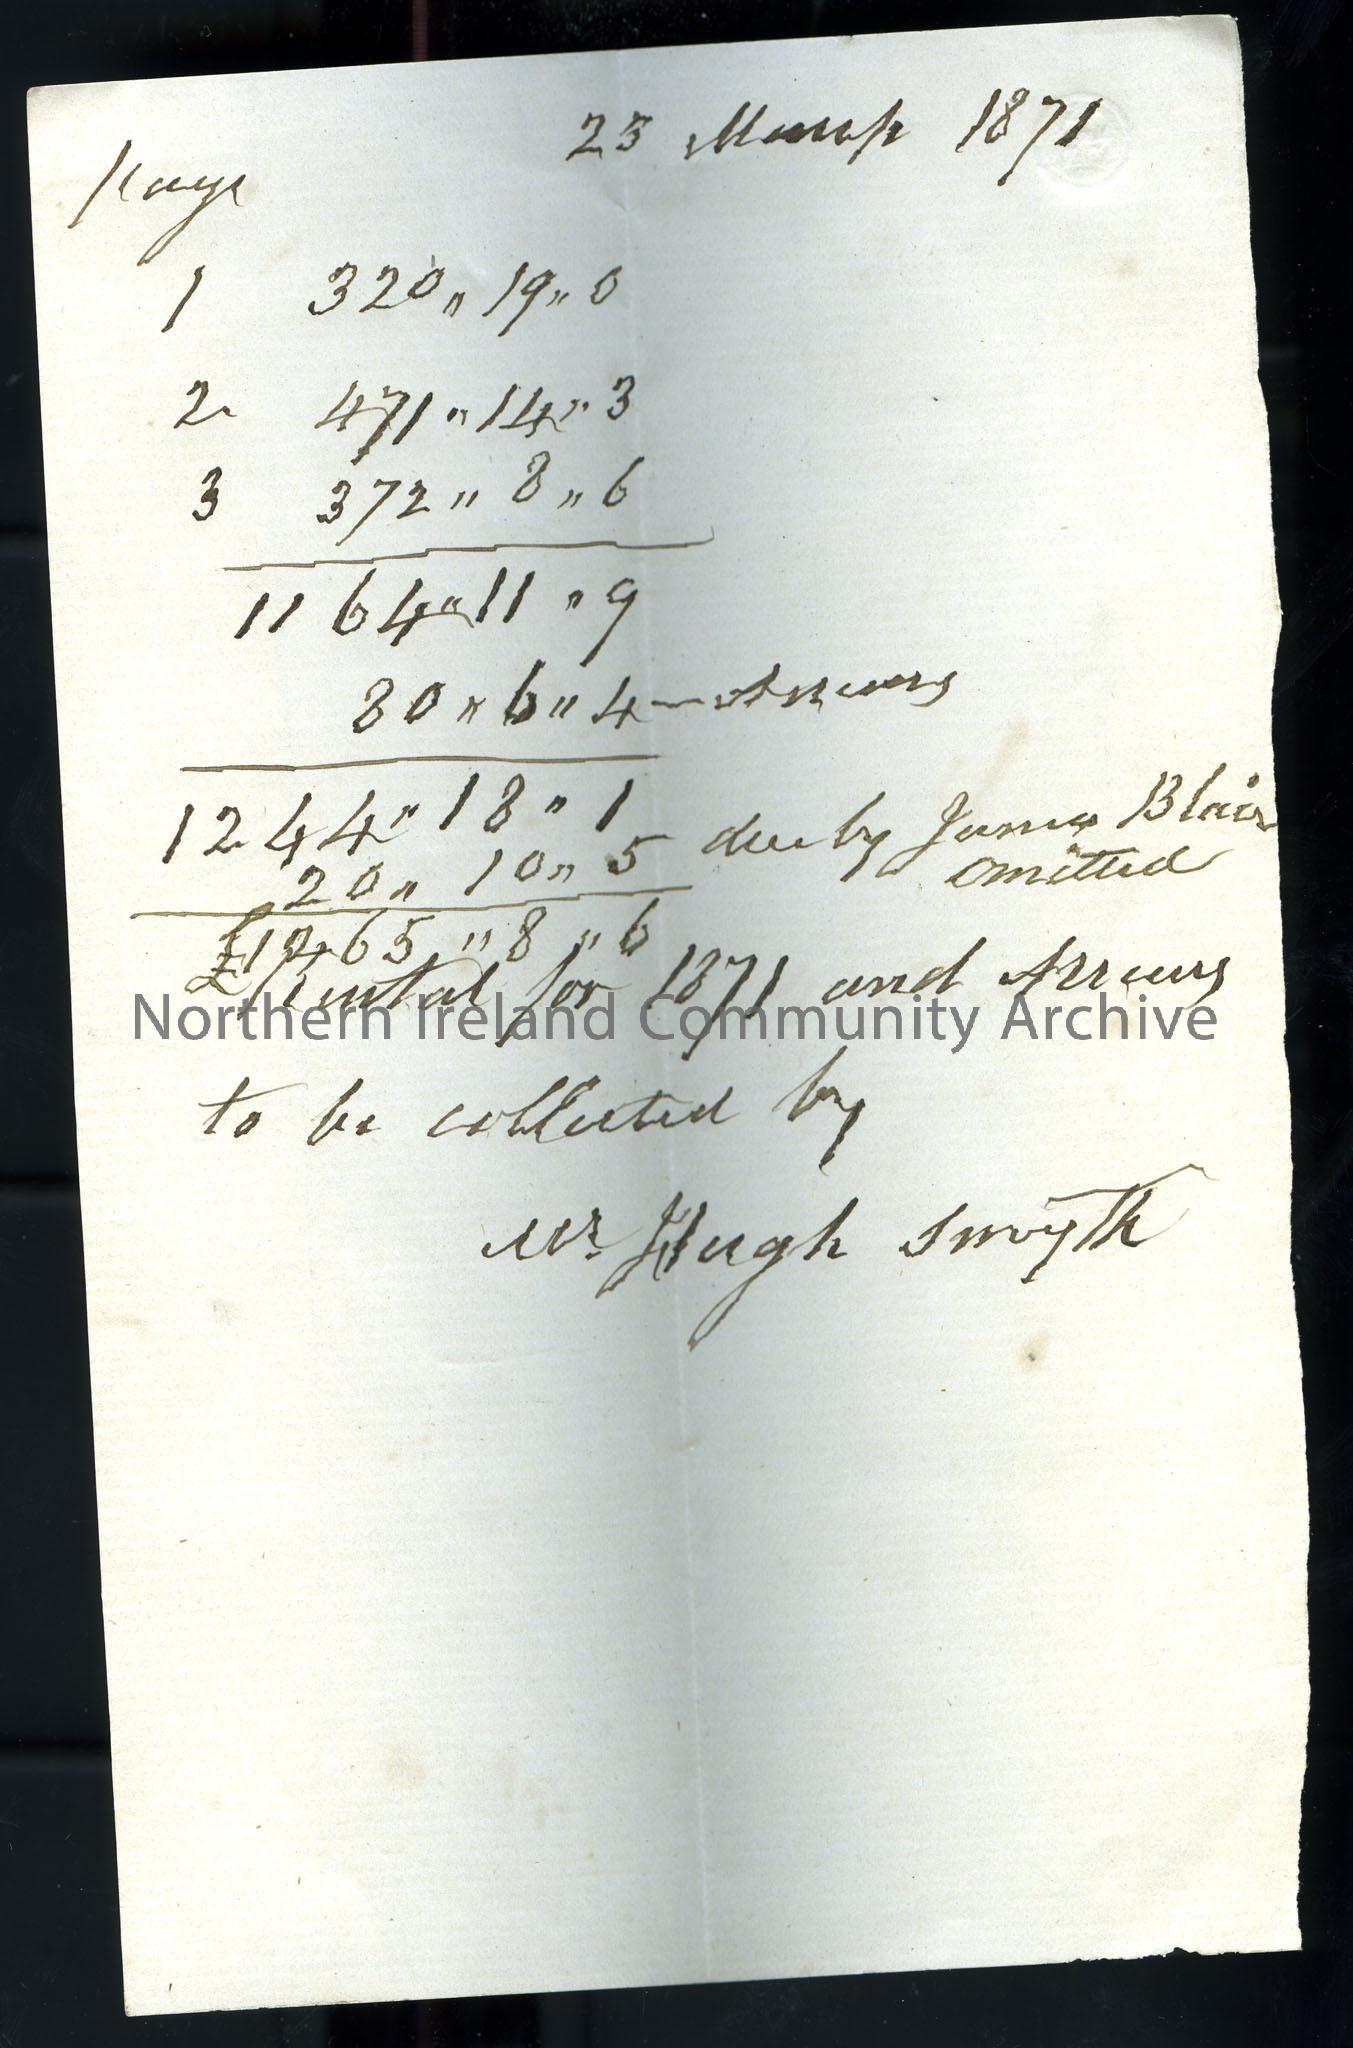 25 March 1871
Page
1 320 " 19 " 0
2 471 " 14 " 3
3 372 " 8 " 6
1164 " 11 " 9
80 " 6 " 4 — Arrears
1244 " 18 " 1
20 " 10 " 5 due by James Blair
omitted
£1265 " 8 " 6
Rental for 1871 and Arrears
Northern Ireland Community Archive
to be collected by
Mr. Hugh Smyth